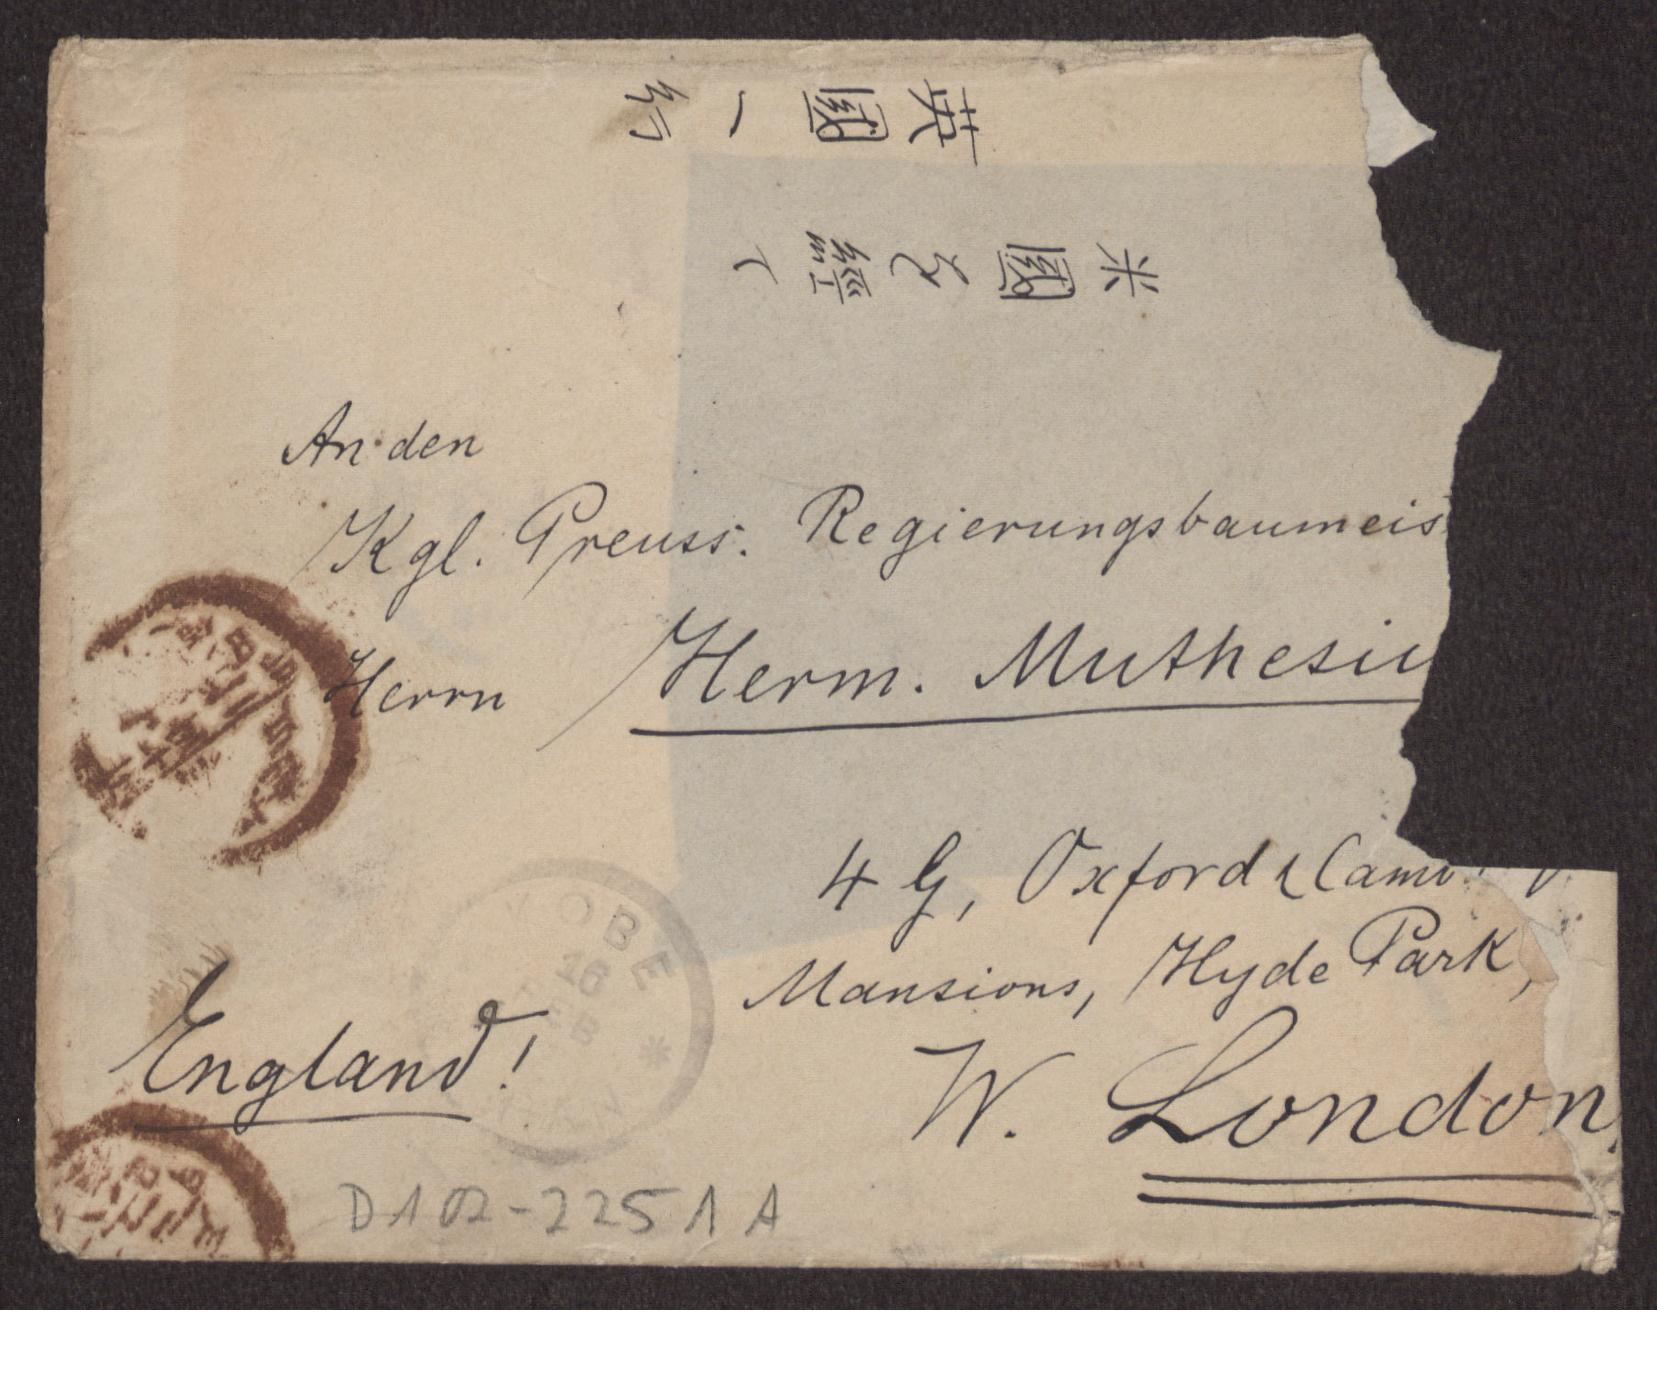 英國へ行
米國を經て
An den
Kgl. Preuss. Regierungsbaumeis
Herrn Herm. Muthesiu
4 G, Oxford & Cam
Mansions, Hyde Park,
W. London.
England!
KOBE
16
D102-2251A